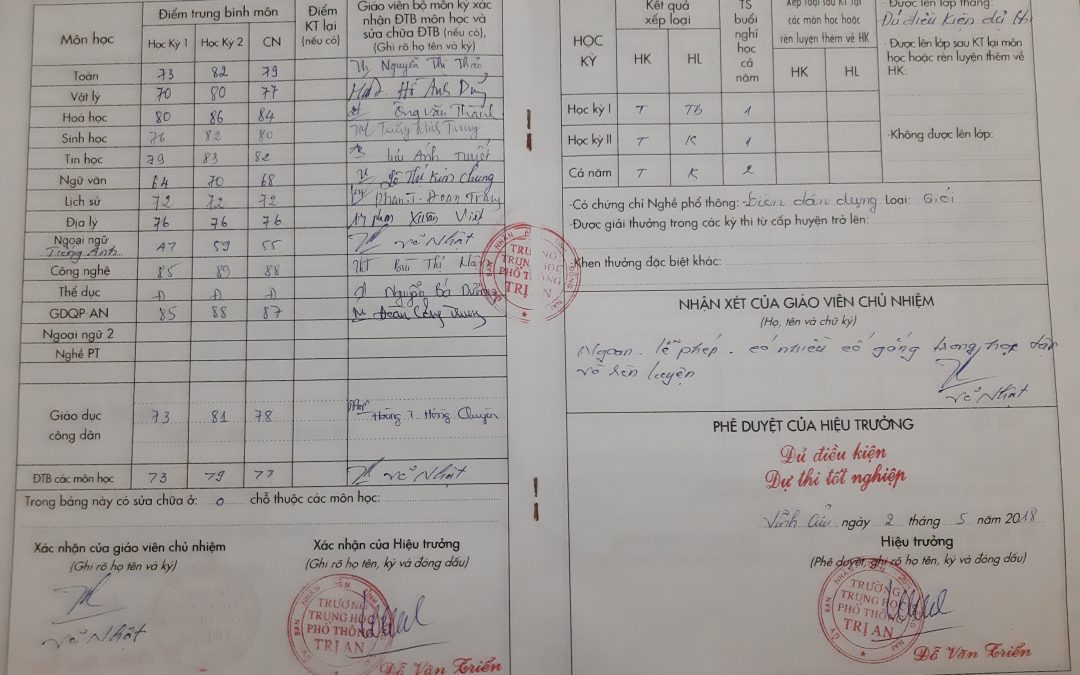 Môn học
Điểm trung bình môn
Học Kỳ 1 Học Kỳ 2 CN
Điểm
KT lại
(nếu có)
Giáo viên bộ môn ký xác
nhận ĐTB môn học và
sửa chữa ĐTB (nếu có),
(Ghi rõ họ tên và ký)
Toán 73 82 79 Nguyễn Thị Thảo
Vật lý 70 80 77 Hồ Anh
Hoá học 80 86 84 Ông Văn Thành
Sinh học 76 82 80
Tin học 79 83 82 Ánh Tuyết
Ngữ văn 64 70 68 Thị Kim Chung
Lịch sử 72 72 72 Phan T. Đoan Trang
Địa lý 76 76 76 Phan Xuân Việt
Ngoại ngữ
Tiếng Anh 47 59 55 Võ Nhật
Công nghệ 85 89 88 Bùi Thị
Thể dục Đ Đ Đ Nguyễn Bá
GDQP-AN 85 88 87 Đoàn Công
Ngoại ngữ 2
Nghề PT
Giáo dục
công dân 73 81 78 Hoàng T. Hồng Quyên
ĐTB các môn học 73 79 77 Võ Nhật
Trong bảng này có sửa chữa ở: 0 chỗ thuộc các môn học:
Xác nhận của giáo viên chủ nhiệm
(Ghi rõ họ tên và ký)
Võ Nhật
Xác nhận của Hiệu trưởng
(Ghi rõ họ tên, ký và đóng dấu)
TRƯỜNG
TRUNG HỌC
PHỔ THÔNG
TRỊ AN
Đỗ Văn Triển
TRƯỜNG
TRUNG HỌC
PHỔ THÔNG
TRỊ AN
HỌC
KỲ
Kết quả
xếp loại
HK HL
TS
buổi
nghỉ
học
cả
năm
Xếp loại sau KT lại
các môn học hoặc
rèn luyện thêm về HK
HK HL
Học kỳ I T Tb 1
Học kỳ II T K 1
Cả năm T K 2
- Được lên lớp thẳng:
Đủ điều kiện dự thi
- Được lên lớp sau KT lại môn
học hoặc rèn luyện thêm về
HK:
-Không được lên lớp:
-Có chứng chỉ Nghề phổ thông: Điện dân dụng Loại: Giỏi
-Được giải thưởng trong các kỳ thi từ cấp huyện trở lên:
-Khen thưởng đặc biệt khác:
NHẬN XÉT CỦA GIÁO VIÊN CHỦ NHIỆM
(Họ, tên và chữ ký)
Ngoan. lễ phép. có nhiều cố gắng trong học tập
và rèn luyện
Võ Nhật
PHÊ DUYỆT CỦA HIỆU TRƯỞNG
Đủ điều kiện
Dự thi tốt nghiệp
Vĩnh Cửu ngày 2 tháng 5 năm 2018
Hiệu trưởng
(Phê duyệt, ghi rõ họ tên, ký và đóng dấu)
TRƯỜNG
TRUNG HỌC
PHỔ THÔNG
TRỊ AN
Đỗ Văn Triển